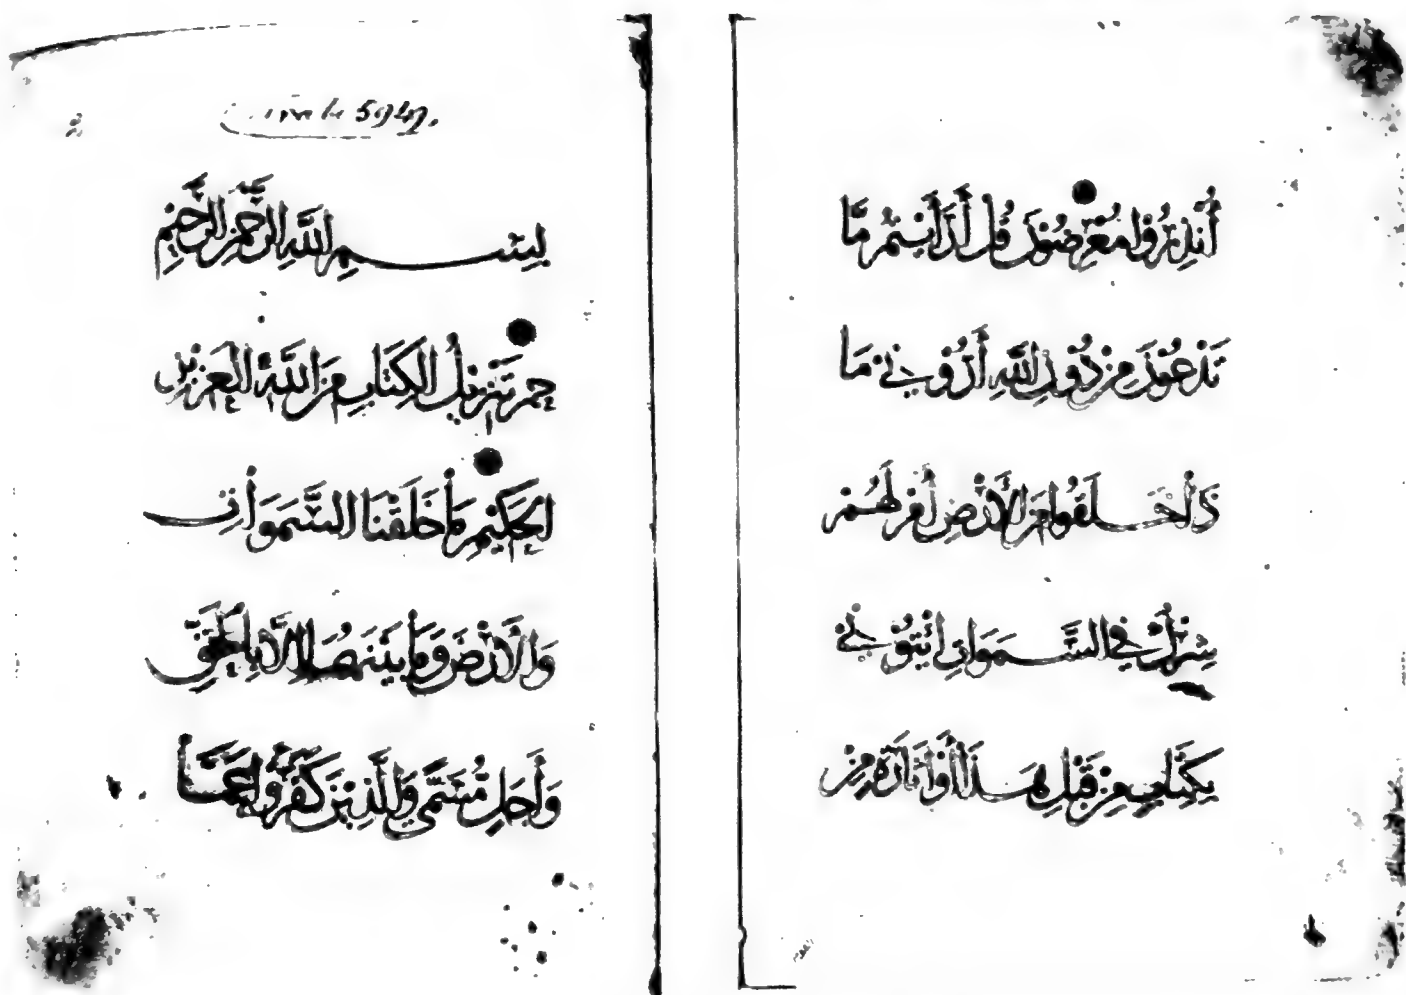 5949.
بِسْمِ اللَّهِ الرَّحْمَٰنِ الرَّحِيمِ
حم تَنزِيلُ الْكِتَابِ مِنَ اللَّهِ الْعَزِيزِ
الْحَكِيمِ مَا خَلَقْنَا السَّمَوَاتِ
وَالْأَرْضَ وَمَا بَيْنَهُمَا إِلَّا بِالْحَقِّ
وَأَجَلٍ مُّسَمًّى وَالَّذِينَ كَفَرُوا عَمَّا
أُنذِرُوا مُعْرِضُونَ قُلْ أَرَأَيْتُم مَّا
تَدْعُونَ مِن دُونِ اللَّهِ أَرُونِي مَا
ذَا خَلَقُوا مِنَ الْأَرْضِ أَمْ لَهُمْ
شِرْكٌ فِي السَّمَوَاتِ ائْتُونِي
بِكِتَابٍ مِن قَبْلِ هَذَا أَوْ أَثَارَةٍ مِنْ